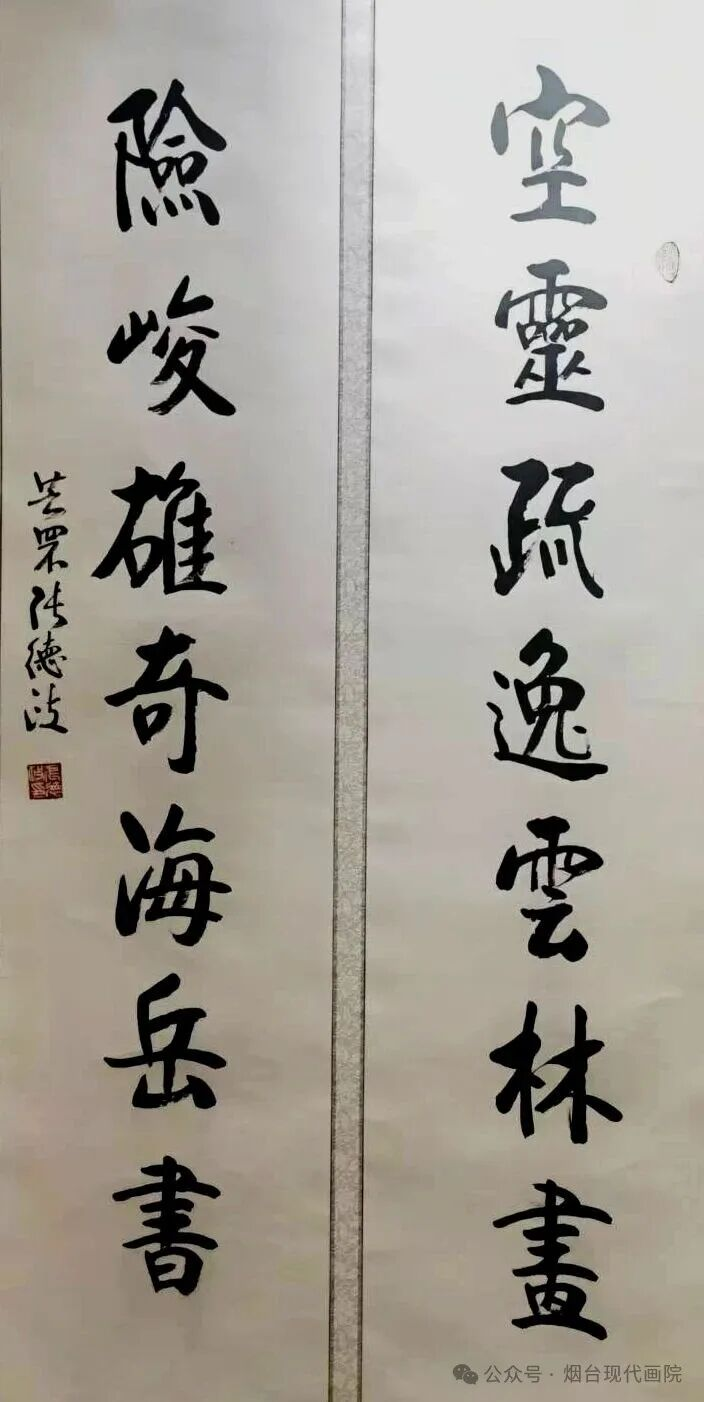 空靈疏逸雲林畫
險峻雄奇海岳書
芝罘張德波
公众号·烟台现代画院